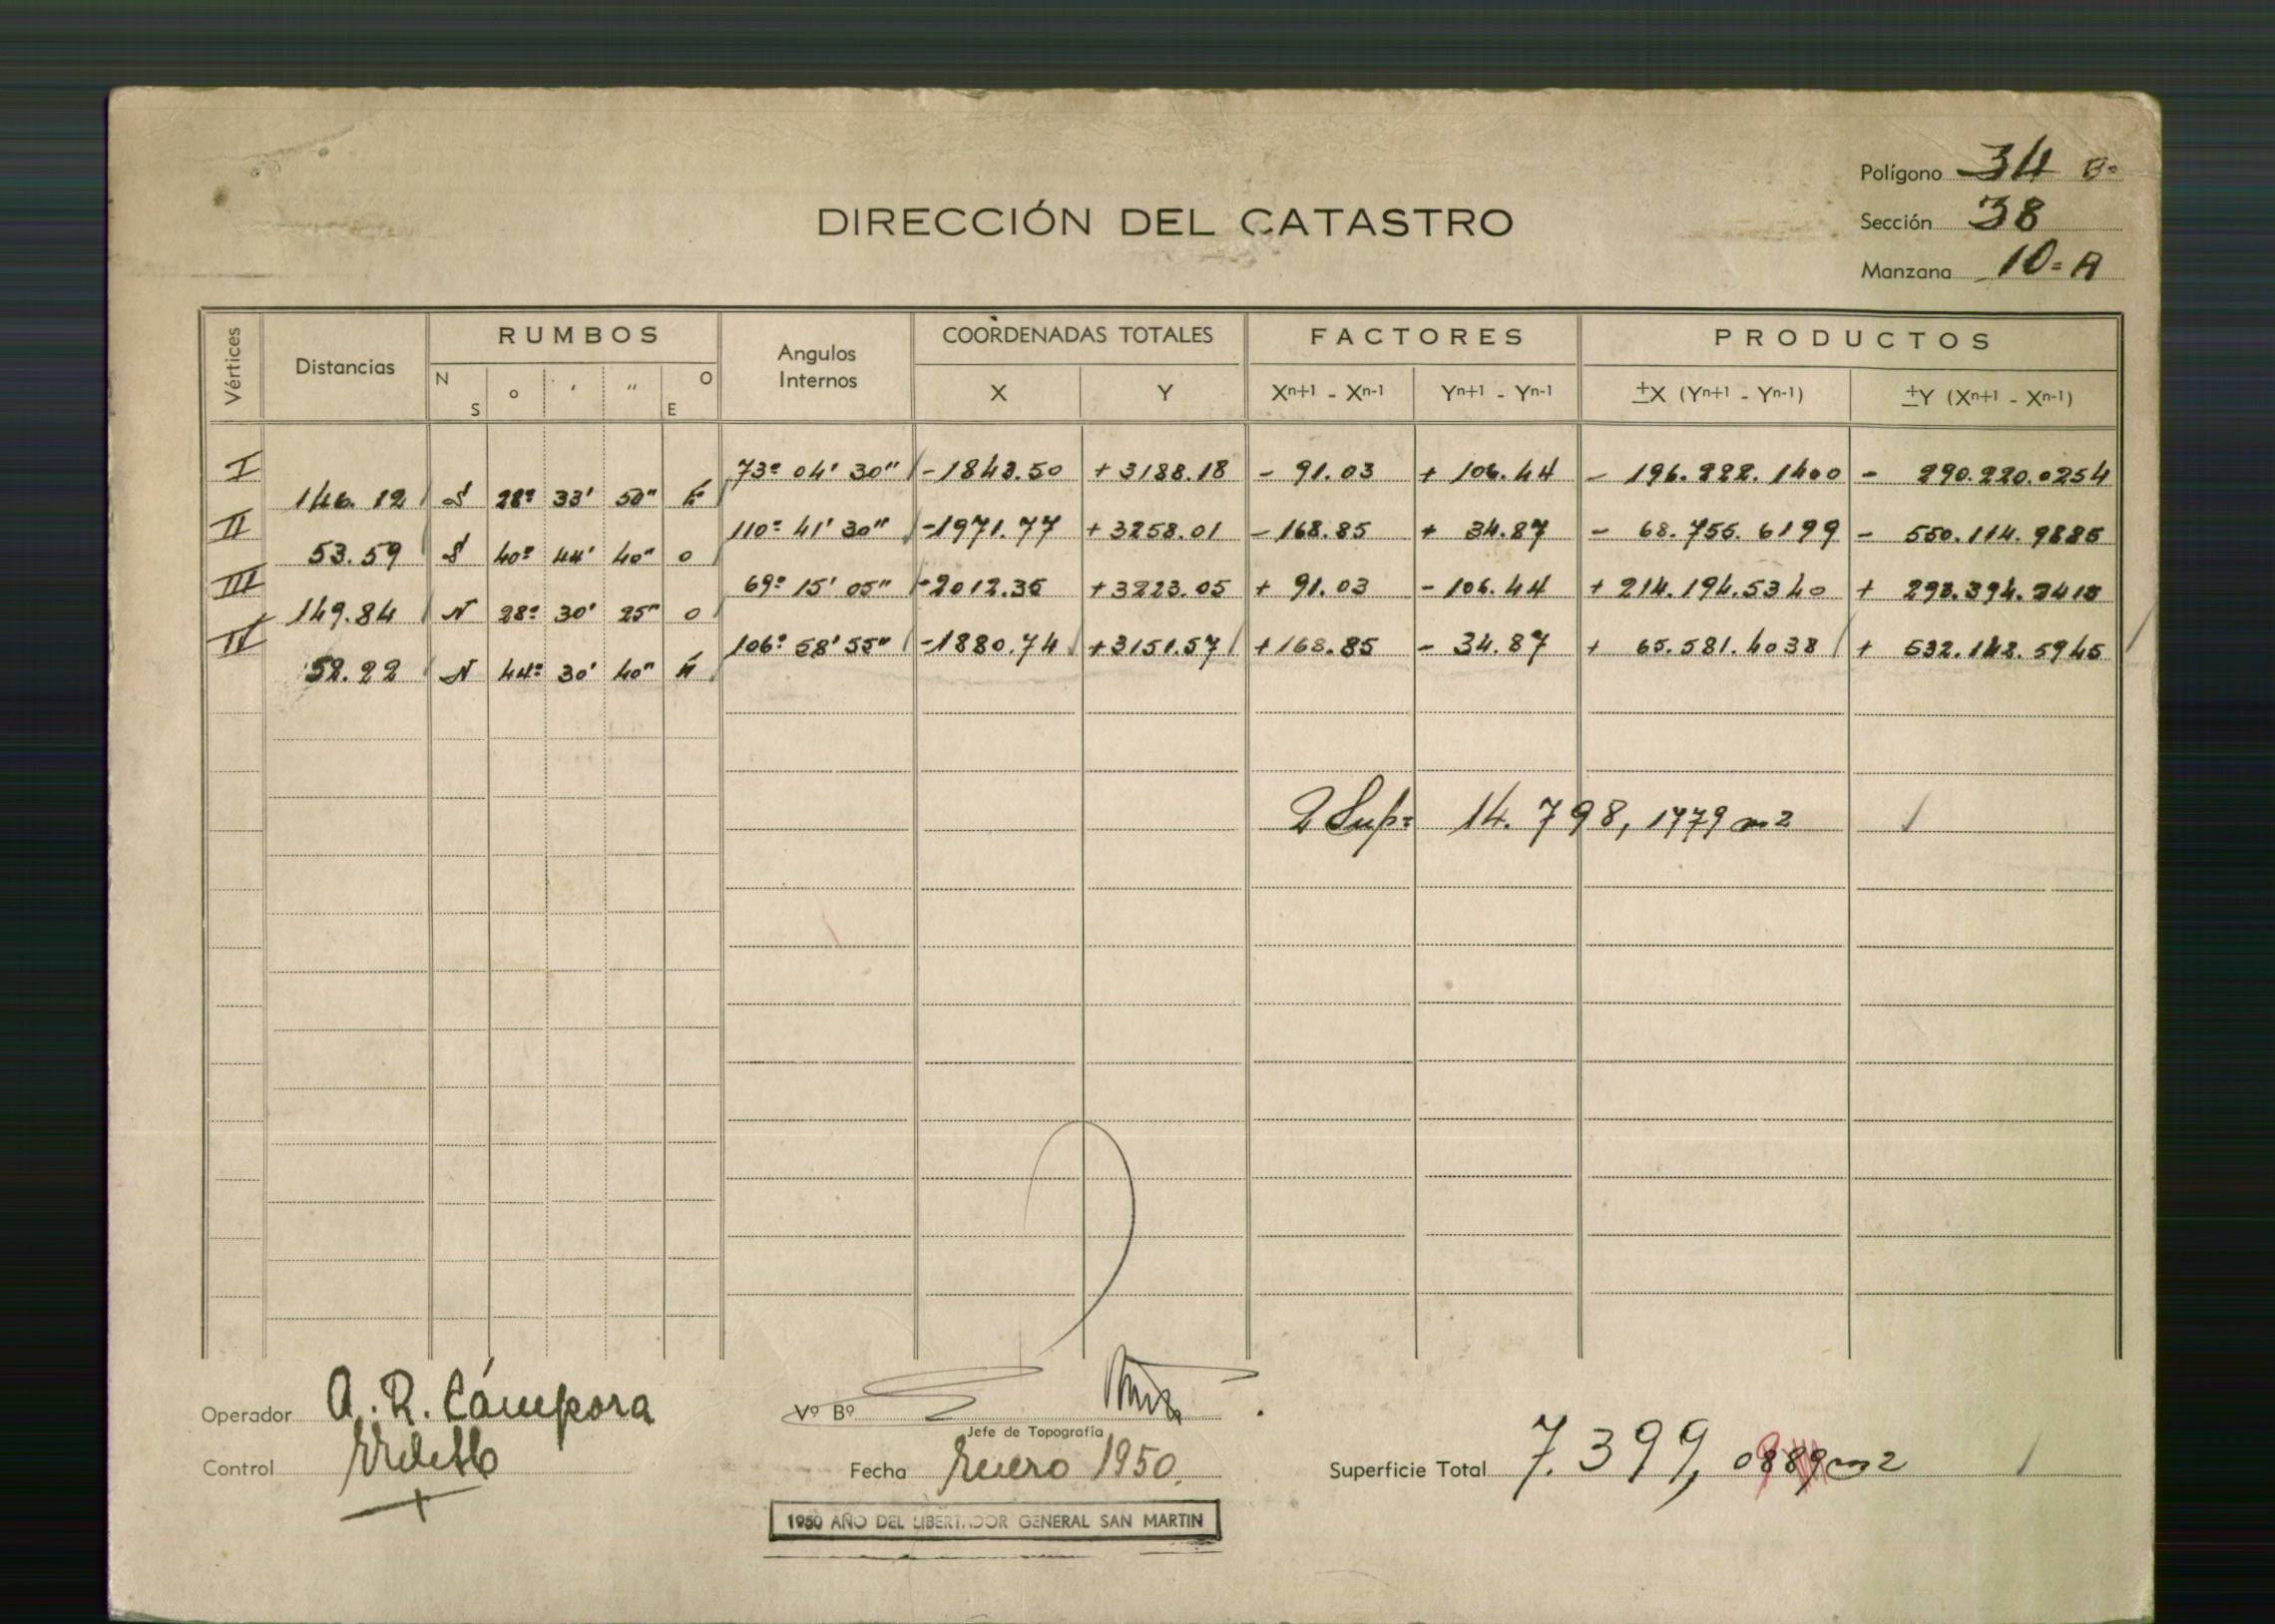 Polígono 34
Sección 38
Manzana 10-A
DIRECCIÓN DEL CATASTRO
Vértices Distancias RUMBOS Angulos Internos COORDENADAS TOTALES FACTORES PRODUCTOS
N S o ' " O E X Y Xn+1 - Xn-1 Yn+1 - Yn-1 ±X (Yn+1 - Yn-1) ±Y (Xn+1 - Xn-1)
I 73º 04' 30" -1843.50 +3188.18 - 91.03 + 106.44 - 196.222.1400 - 290.220.0254
146.12 S 28º 33' 50" E
II 110º 41' 30" -1971.77 +3258.01 -168.85 + 34.87 - 68.755.6199 - 550.114.9885
53.59 S 40º 44' 40" O
III 69º 15' 05" -2012.35 +3223.05 + 91.03 - 106.44 + 214.194.5340 + 293.394.2415
149.84 N 28º 30' 25" O
IV 106º 58' 55" -1880.74 +3151.57 +168.85 - 34.87 + 65.581.4038 + 532.142.5945
52.22 N 44º 30' 40" E
2 Sup= 14.798,1779 m2
Operador A. R. Cámpora
Control
Vº Bº
Jefe de Topografía
Fecha Enero 1950.
Superficie Total 7.399,0889 m2
1950 AÑO DEL LIBERTADOR GENERAL SAN MARTIN